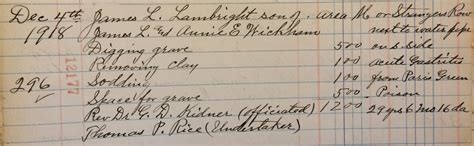 Dec 4th James L. Lambright son of Area M or Strangers Row
1918 James L. & Annie E. Wickham next to water pipe
Digging grave 500 on s. side
Removing clay 100 acute Gastritis
296 12177 Sodding 100 from Paris Green
Space for grave 500 Poison
Rev Dr. G. D. Kidner (officiated) 1200 29 yrs 6 mos 16 da
Thomas P. Rice (Undertaker)